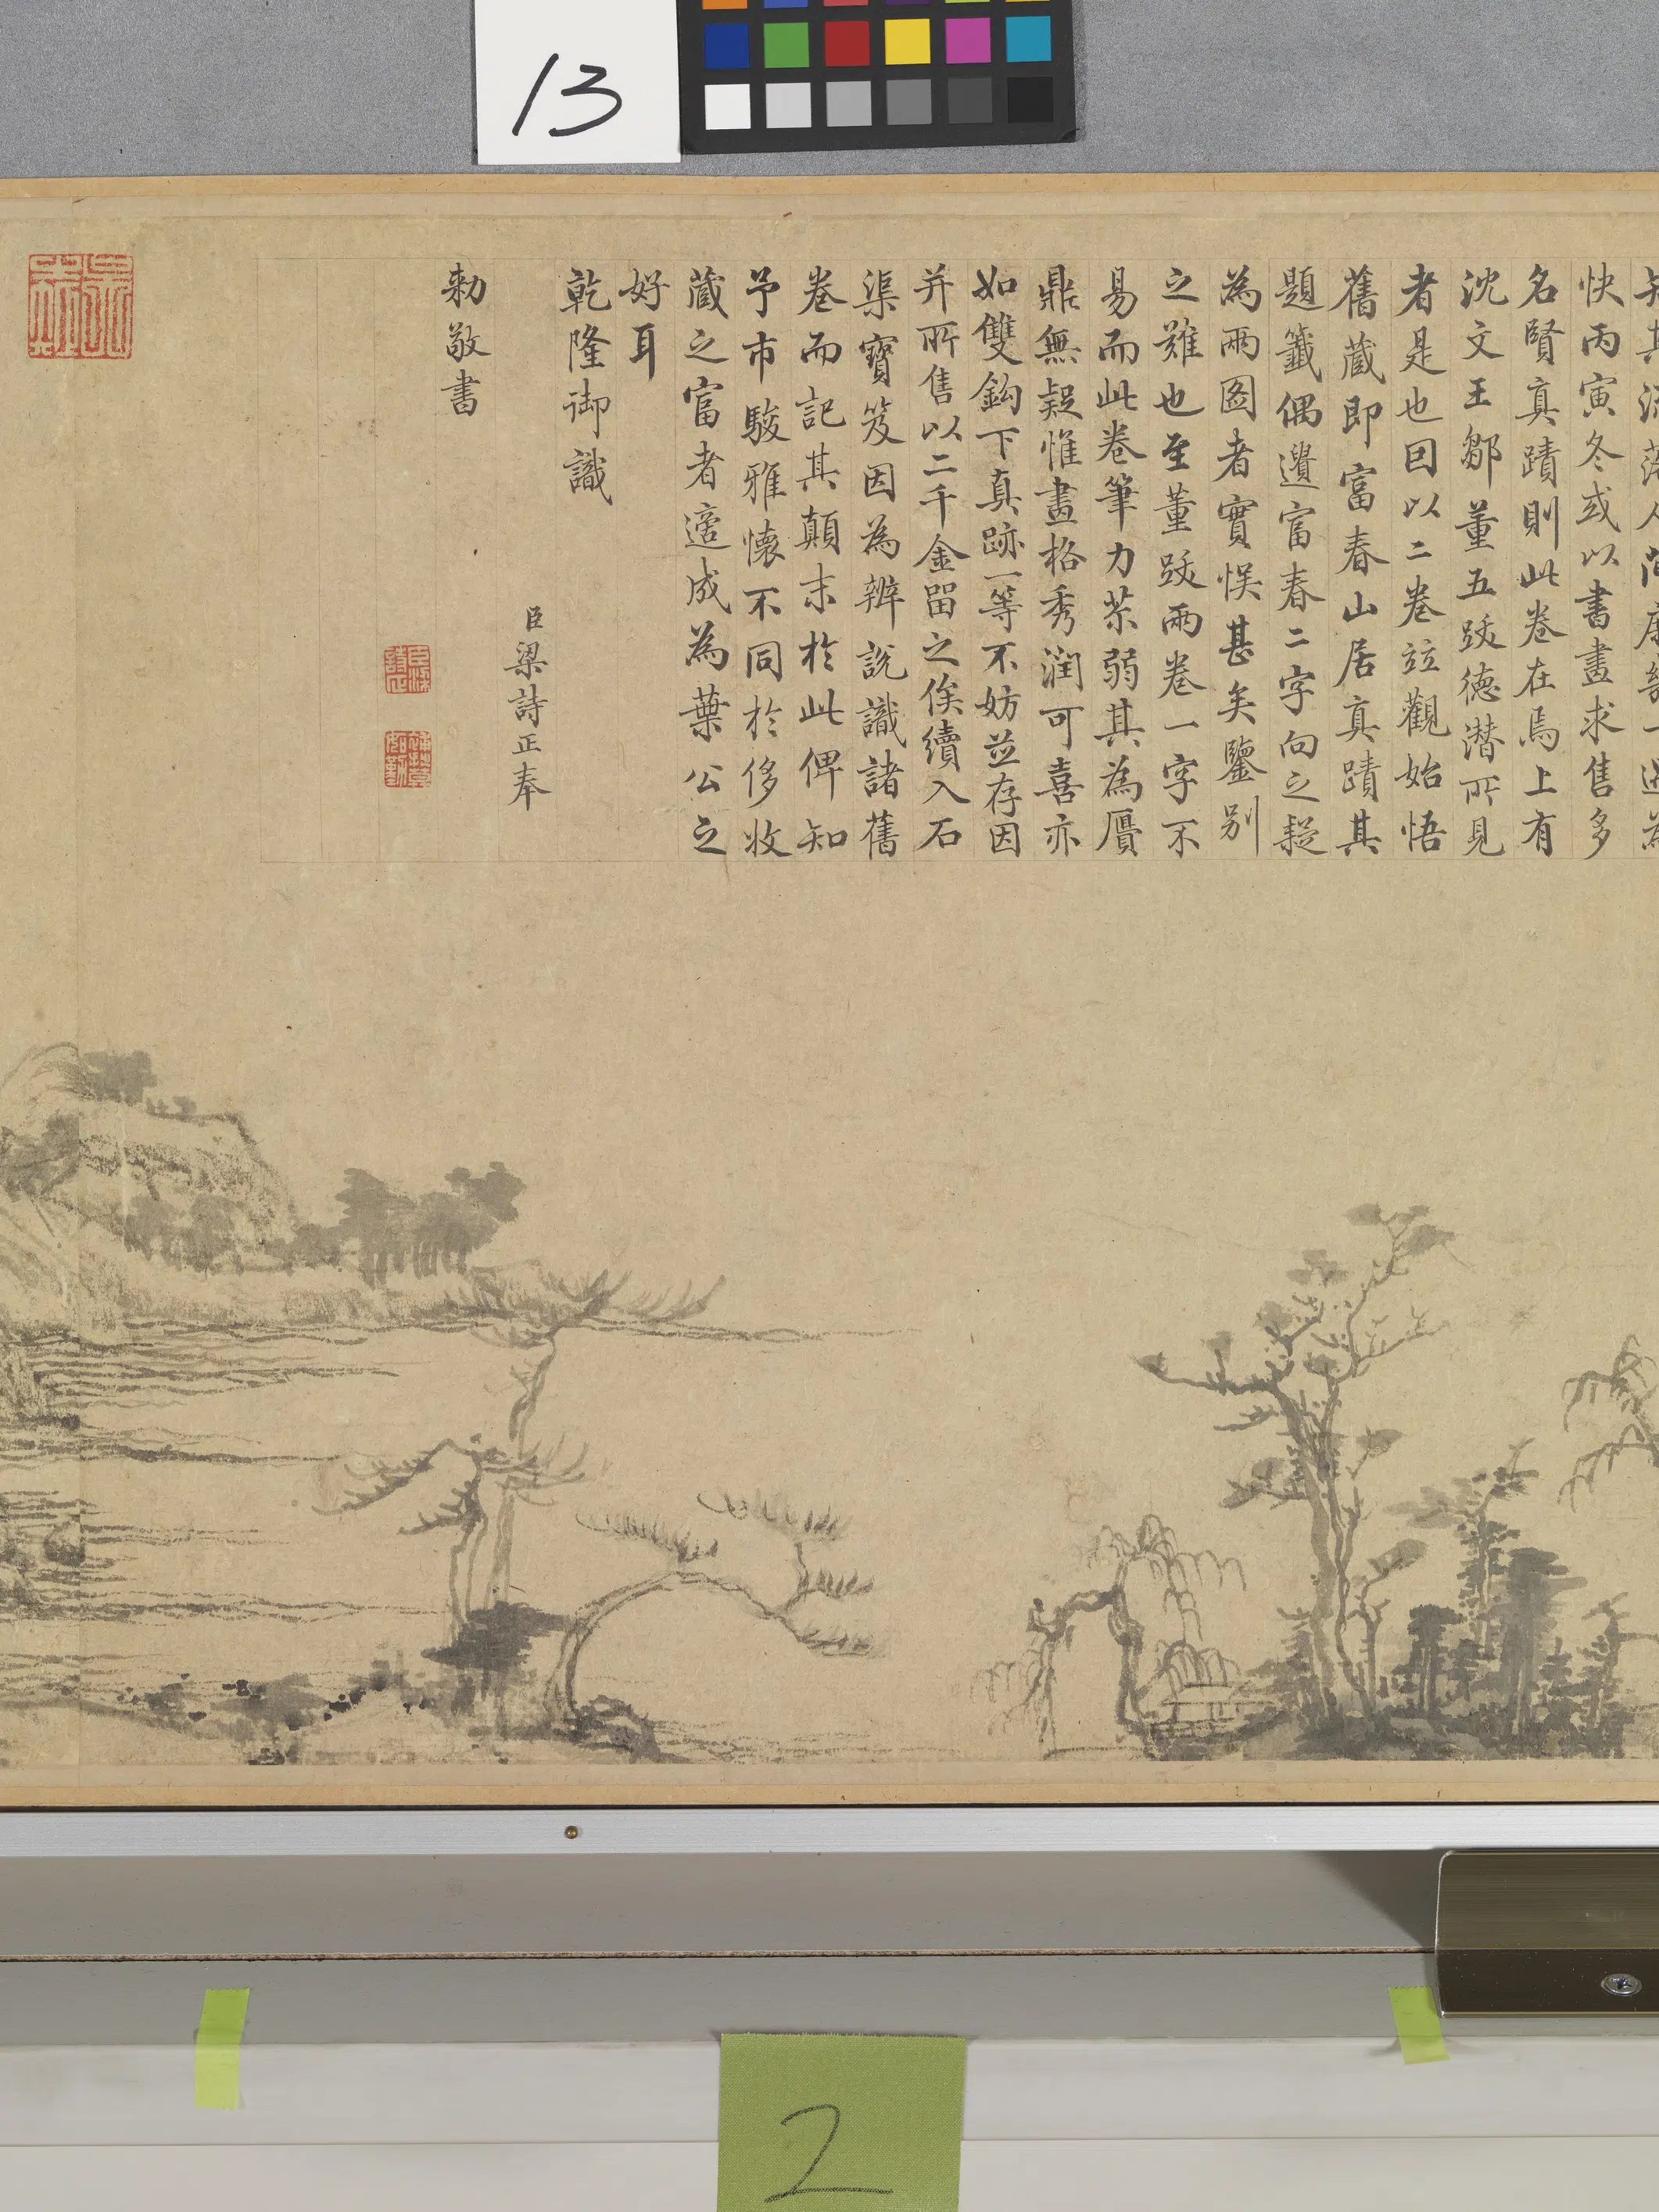 13
快丙寅冬或以書畫求售多
名賢真蹟則此卷在焉上有
沈文王鄒董五跋德潜所見
者是也因以二卷竝觀始悟
舊藏即富春山居真蹟其
題籤偶遺富春二字向之疑
為兩圖者實悮甚矣鑒别
之難也至董跋兩卷一字不
易而此卷筆力苶弱其為贗
鼎無疑惟畫格秀潤可喜亦
如雙鈎下真跡一等不妨並存因
并所售以二千金留之俟續入石
渠寶笈因為辨說識諸舊
卷而記其顛末於此俾知
予市駿雅懷不同於侈收
藏之富者適成為葉公之
好耳
乾隆御識
臣梁詩正奉
勅敬書
2